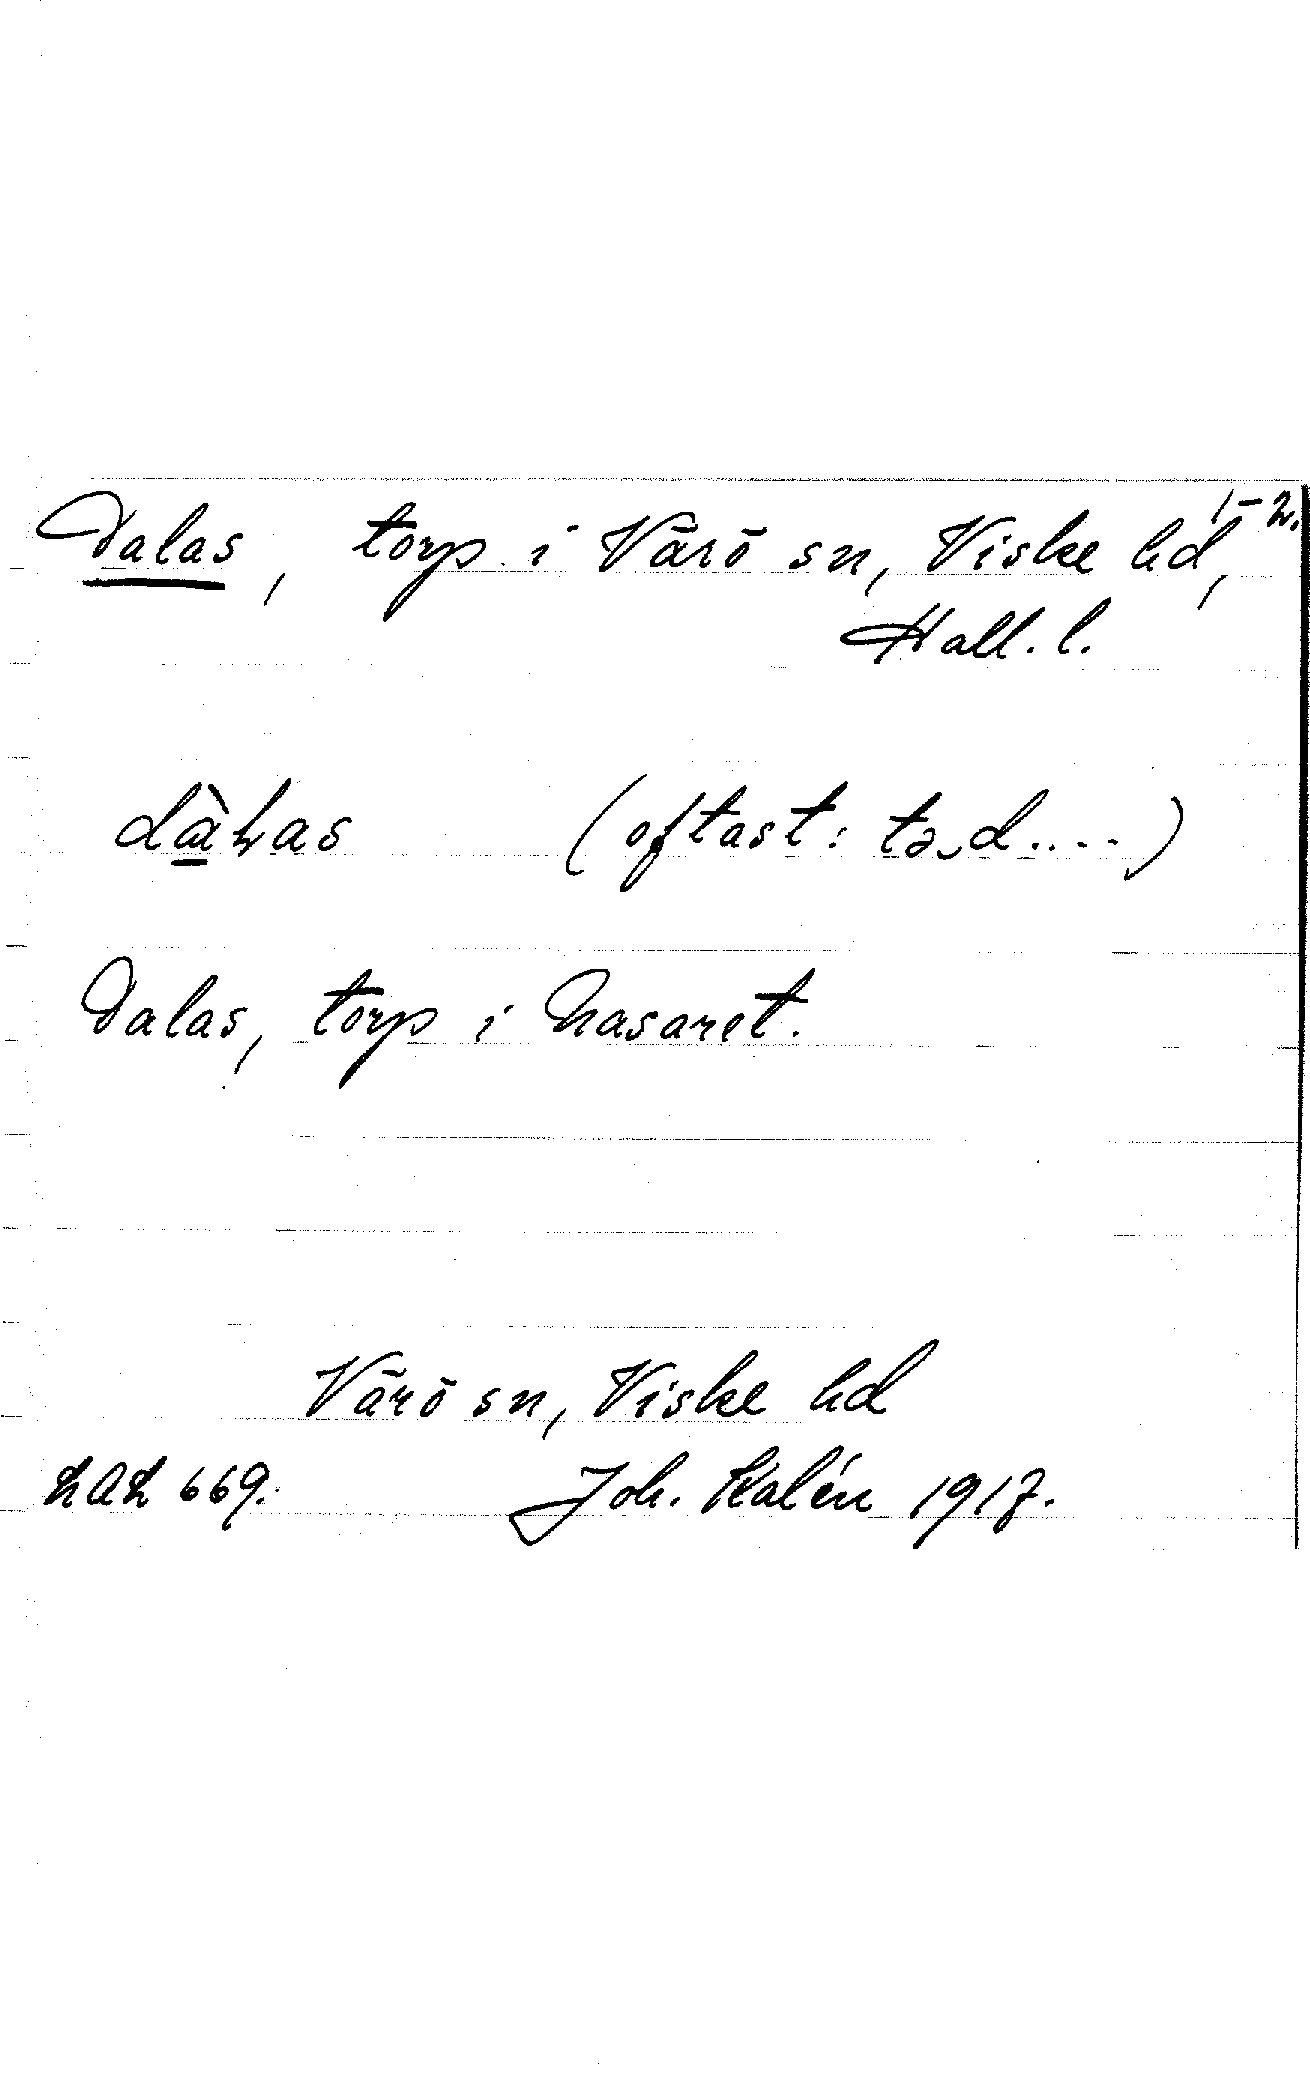 1-2.
Dalas, torp i Värö sn, Viske hd,
Hall. l.
dàɫas (oftast: tə‿d....)
Dalas, torp i Nasaret.
Värö sn, Viske hd
LAL 669. Joh. Kalén 1917.